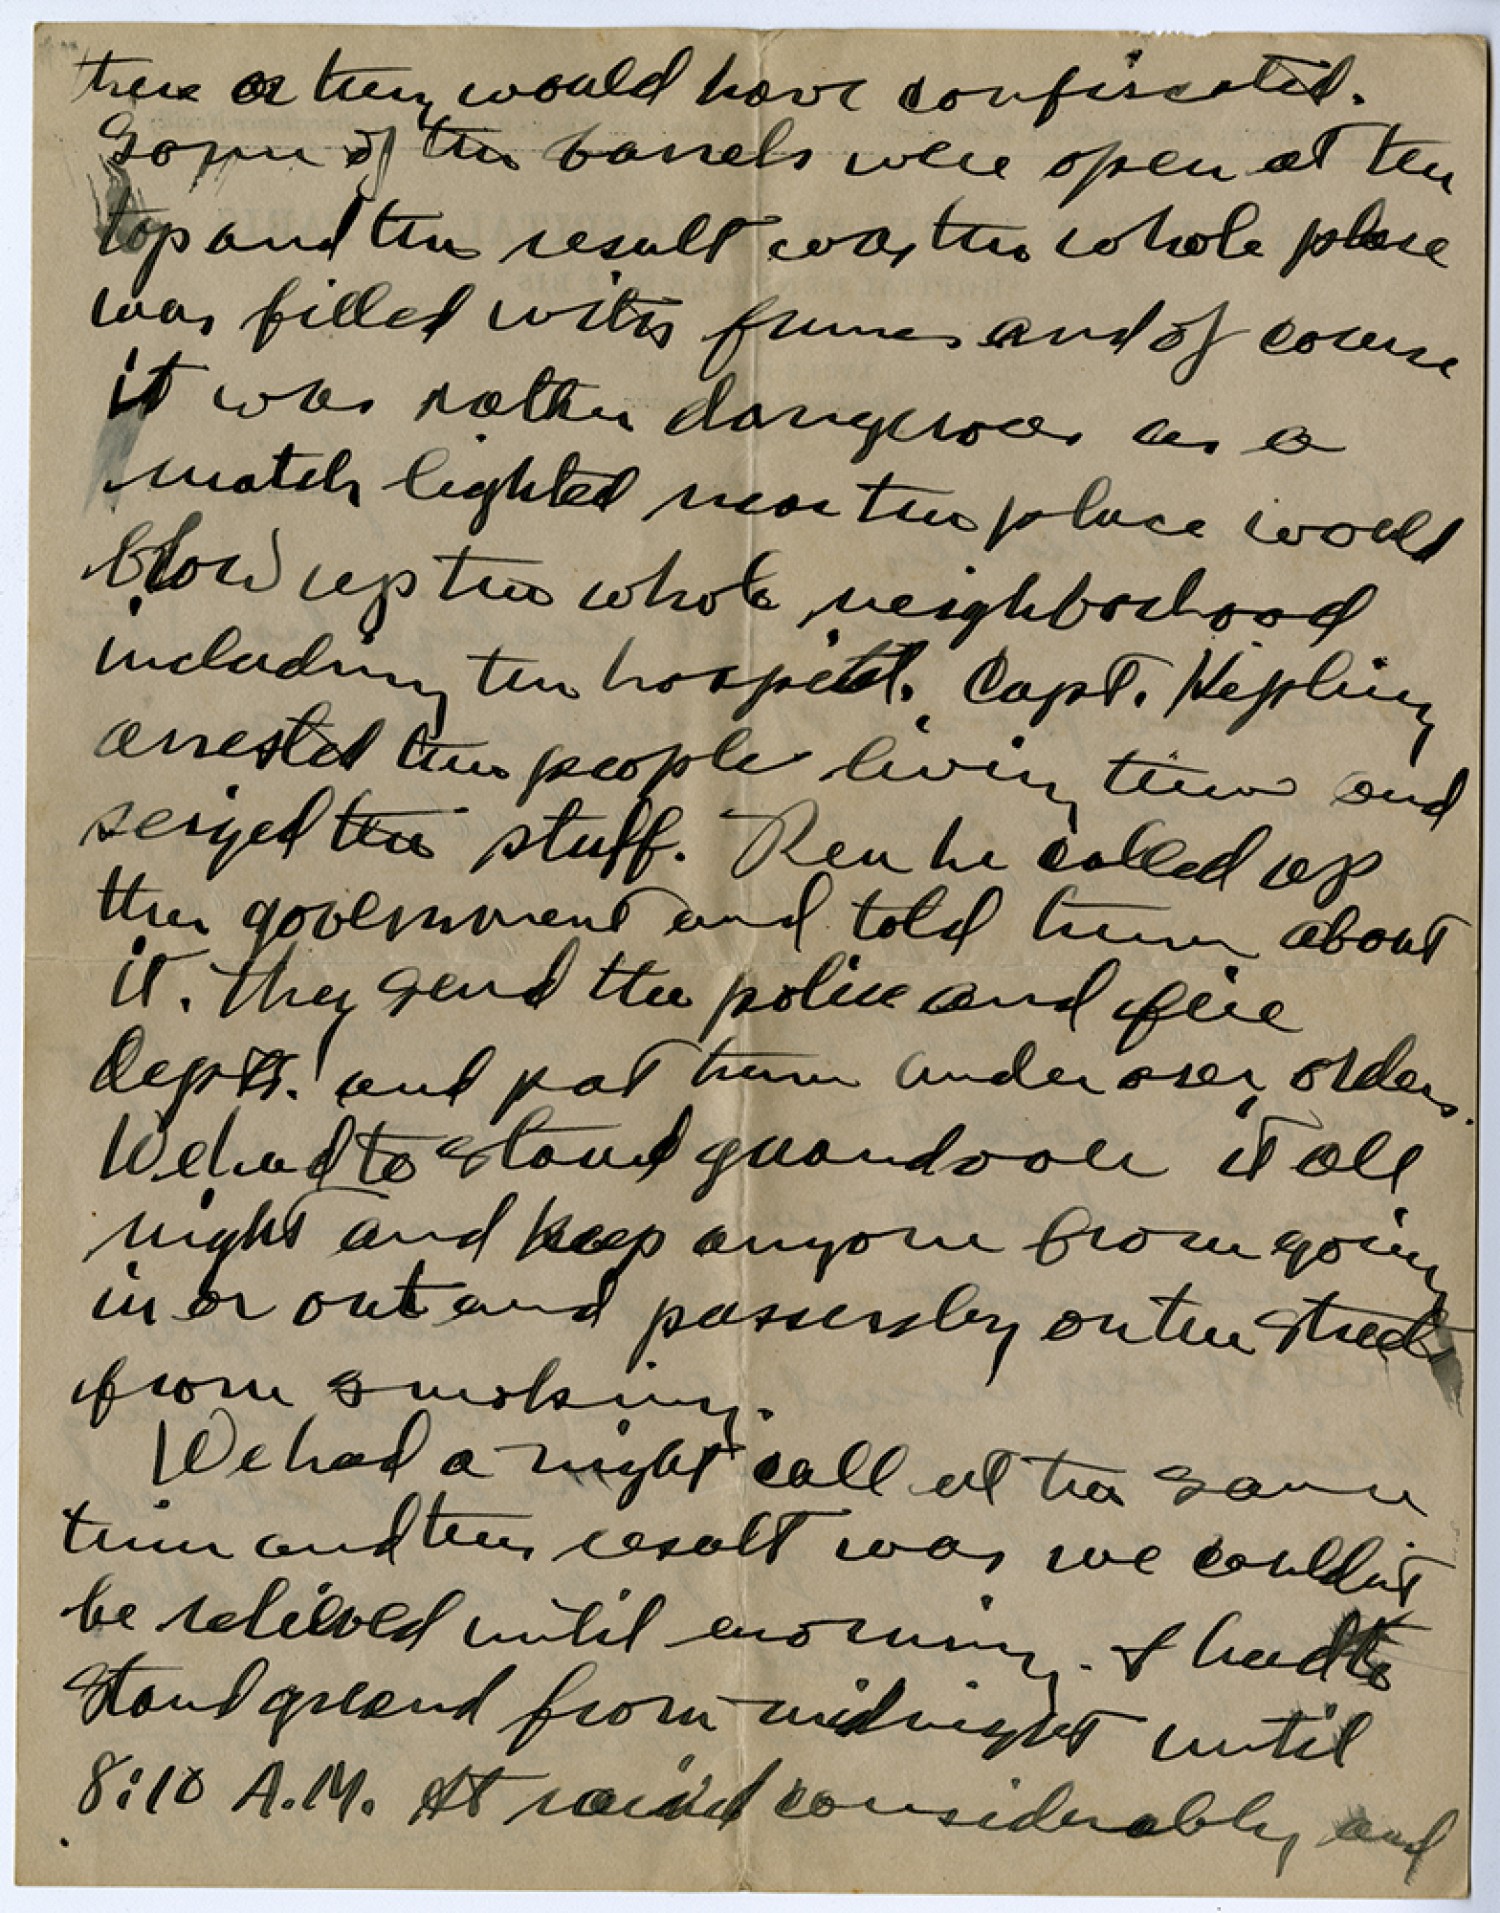 there or they would have confiscated.
Some of the barrels were open at the
top and the result was the whole place
was filled with fumes and of course
it was rather dangerous as a
match lighted near the place would
blow up the whole neighborhood
including the hospital. Capt. Kipling
arrested the people living there and
seized the stuff. Then he called up
the government and told them about
it. They send the police and fire
depts. and put them under over orders.
We had to stand guard over it all
night and keep anyone from going
in or out and passersby on the street
from smoking.
We had a night call at the same
time and the result was we couldn't
be relieved until morning. I had to
stand guard from midnight until
8:10 A.M. It rained considerably and